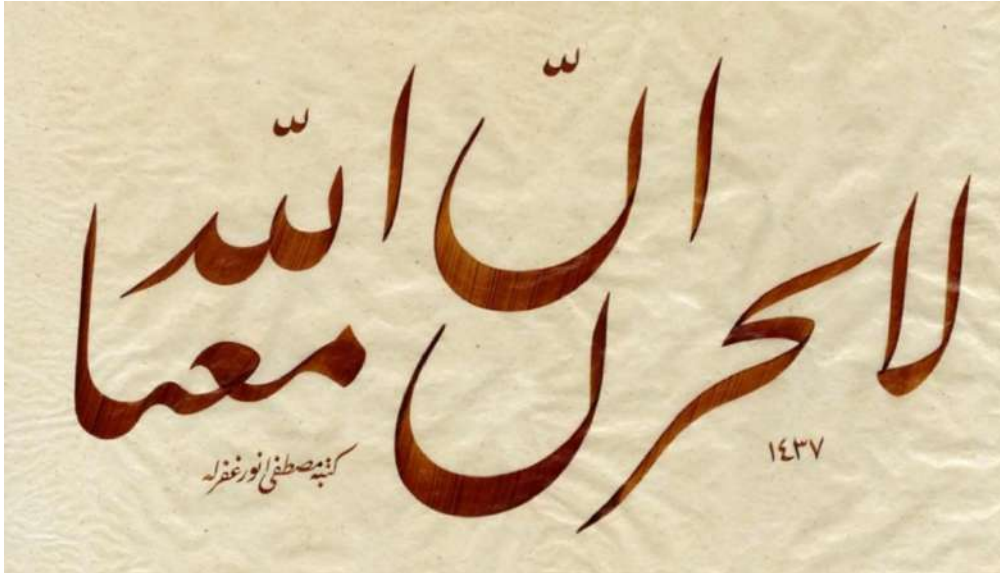 لا تحزن انّ الله معنا
١٤٣٧
كتبه مصطفى انور غفر له